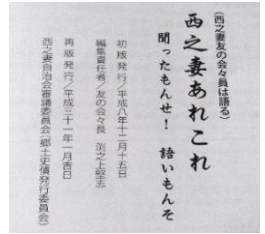 (西之妻友の会々員は語る)
西之妻あれこれ
聞ったもんせ! 語いもんそ
初版発行/平成八年十二月十五日
編集責任者/友の会々長 渕之上経志
再版発行/平成三十一年一月吉日
西之妻自治会審議委員会(郷土史債発行委員会)